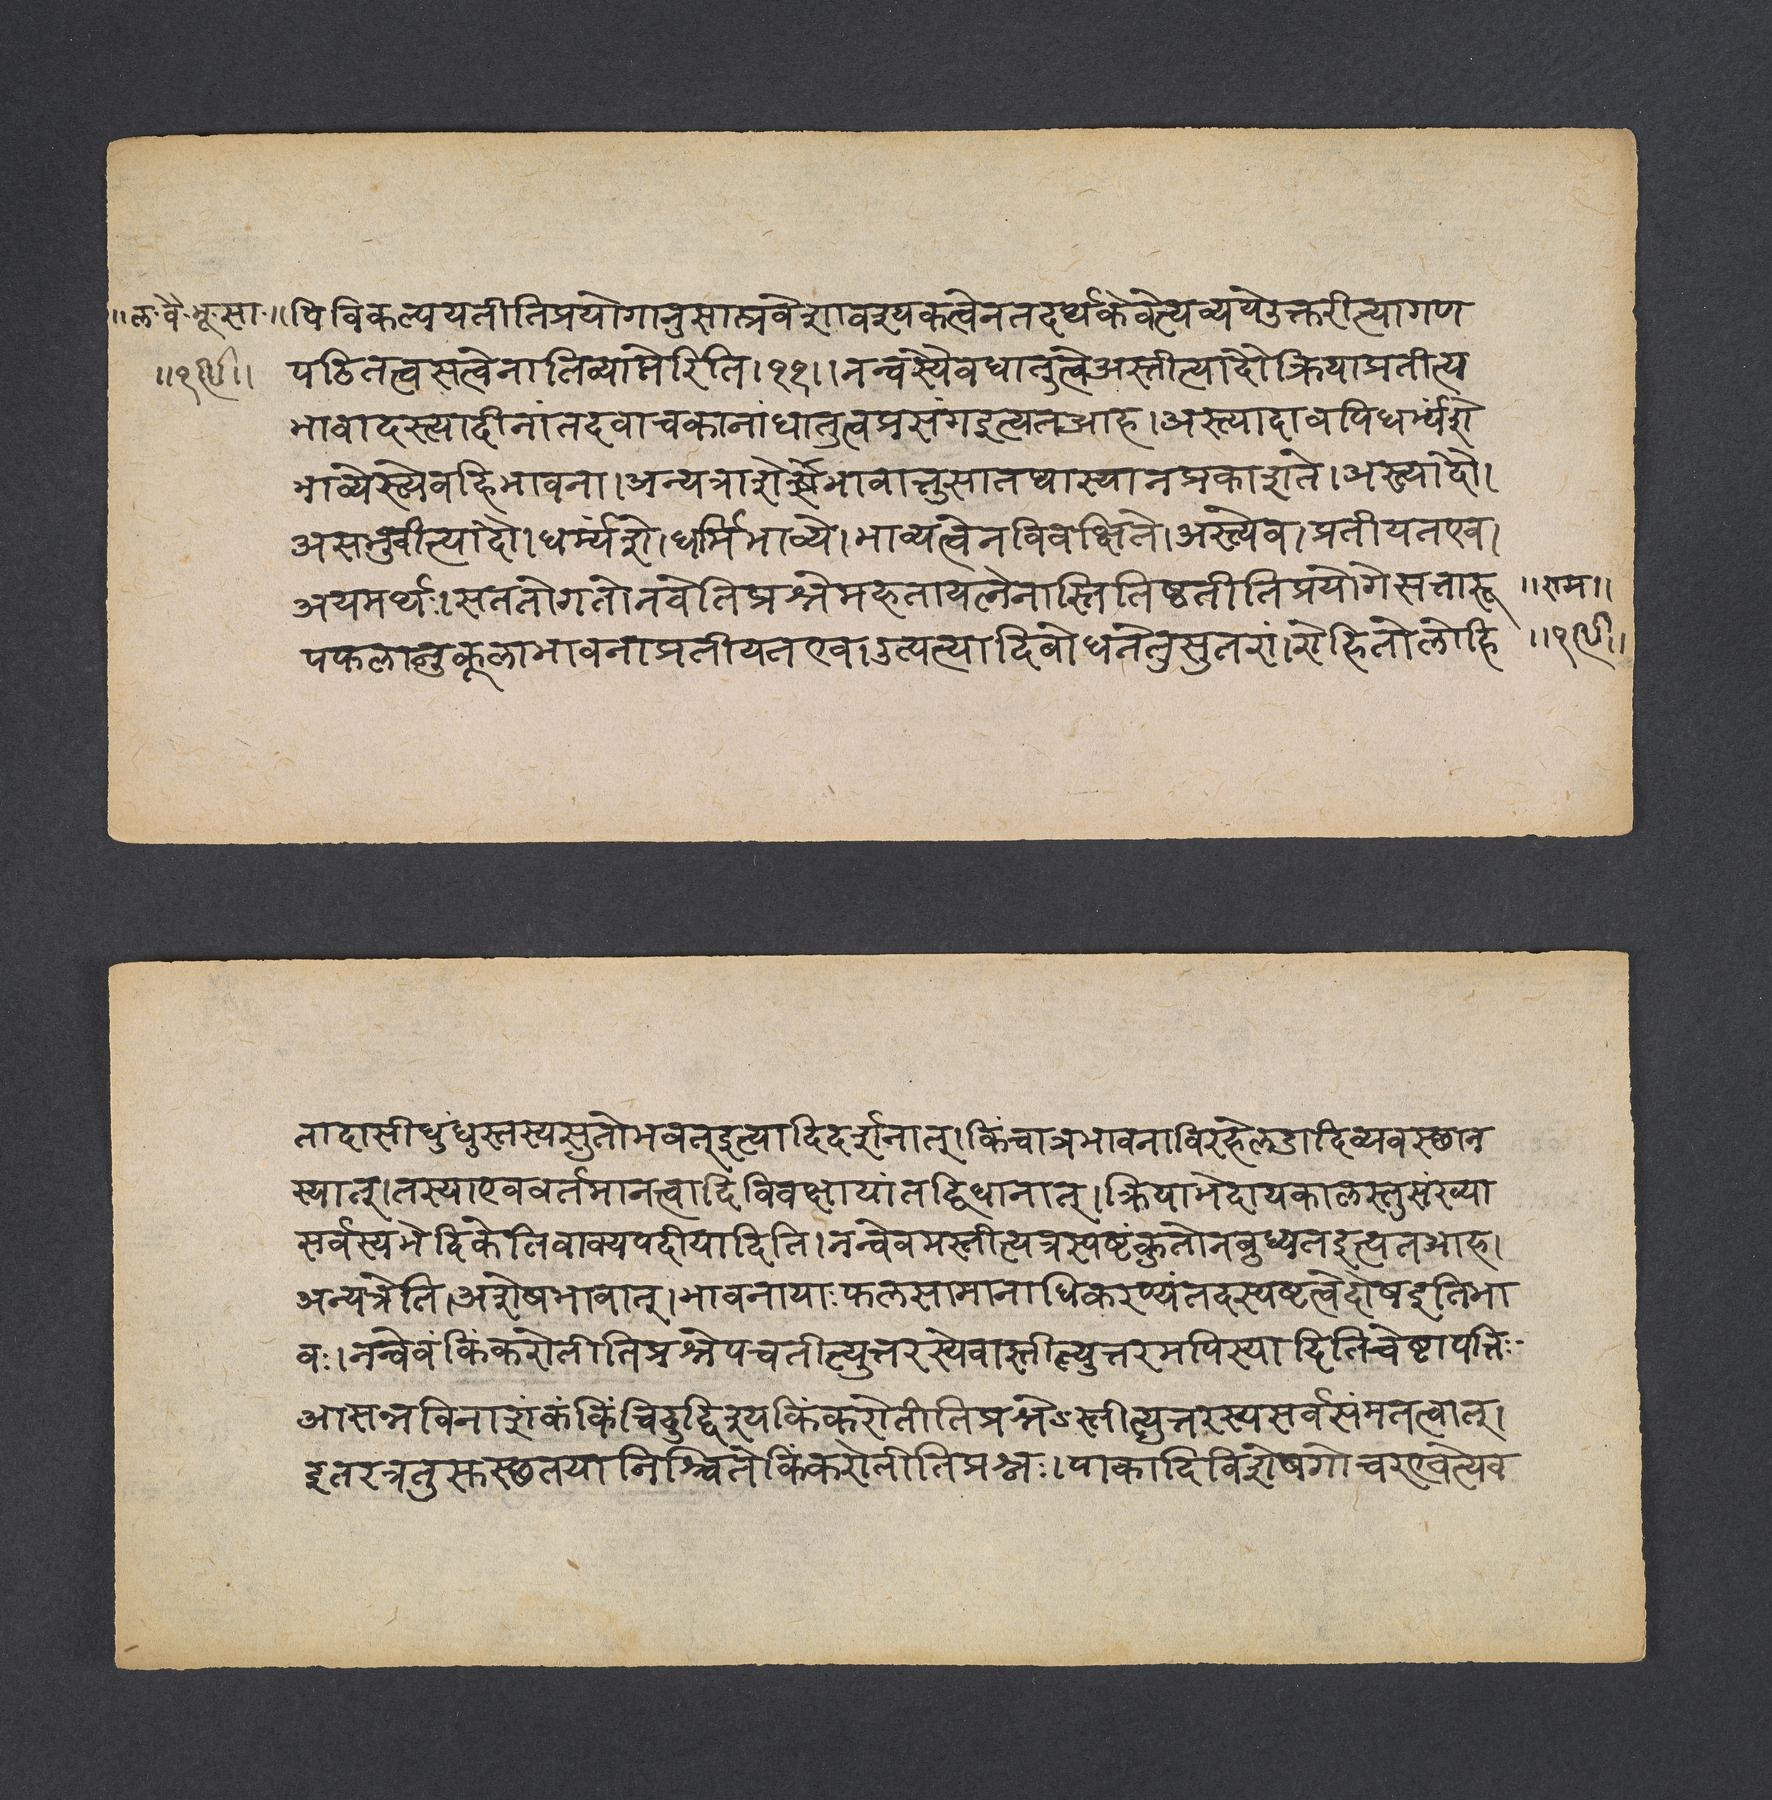 ॥ल·वै·भू·सा·॥पि विकल्पयतीतिप्रयोगानुसारात्भावनावश्यकत्वेनतदर्थकेवेत्यव्ययेउक्तरीत्यागण
पठितत्वसत्वेनातिव्याप्तेरिति।११।।नन्वस्यैवधातुत्वेअस्तीत्यादौक्रियाप्रतीत्य
भावादस्त्यादीनांतदवाचकानांधातुत्वप्रसंगइत्यतआह।अस्त्यादावपिधर्म्यंशे
भाव्येस्त्येवहिभावना।अन्यत्राशेषभावात्तुसातथास्यानप्रकाशते।अस्त्यादौ।
असभुवीत्यादौ।धर्म्यंशे।धर्मिभाव्ये।भाव्यत्वेनविवक्षिते।अस्त्येव।प्रतीयतएव।
अयमर्थः।सततोगतोनवेतिप्रश्नेमहतायत्नेनास्तितिष्ठतीतिप्रयोगेसत्तारू ॥राम॥
पफलानुकूलाभावनाप्रतीयतएव।उत्पत्यादिबोधनेतुसुतरां।रोहितोलोहि
तादासीधुंधुस्तस्यसुतोभवत्इत्यादिदर्शनात्।किंचात्रभावनाविरहेलडादिव्यवस्छान
स्यात्।तस्याएववर्तमानत्वादिविवक्षायांतद्विधानात्।क्रियाभेदायकालस्तुसंख्या
सर्वस्यभेदिकेतिवाक्यपदीयादिति।नन्वेवमस्तीत्यत्रस्पष्टंकुतोनबुध्यतइत्यतआह।
अन्यत्रेति।अशेषभावात्।भावनायाःफलसामानाधिकरण्यंतदस्पष्टत्वेदोषइतिभा
वः।नन्वेवंकिंकरोतीतिप्रश्नेपचतीत्युत्तरस्येवास्तीत्युत्तरमपिस्यादितिचेष्टापत्तिः
आसन्नविनाशंकंकिंचिदुद्दिश्यकिंकरोतीतिप्रश्नेऽस्तीत्युत्तरस्यसर्वसंमतत्वात्।
इतरत्रतुस्कस्छतयानिश्चितेकिंकरोतीतिप्रश्नः।पाकादिविशेषगोचरएवेत्येव